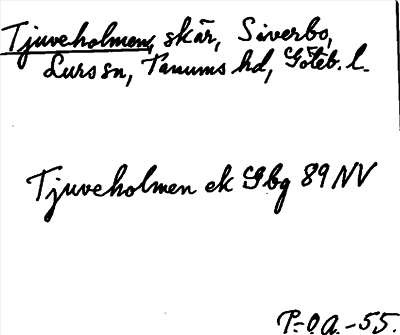 Tjuveholmen, skär, Siverbo,
Lurs sn, Tanums hd, Göteb. l.
Tjuveholmen ek Gbg 89 NV
P.-O.A.-55.